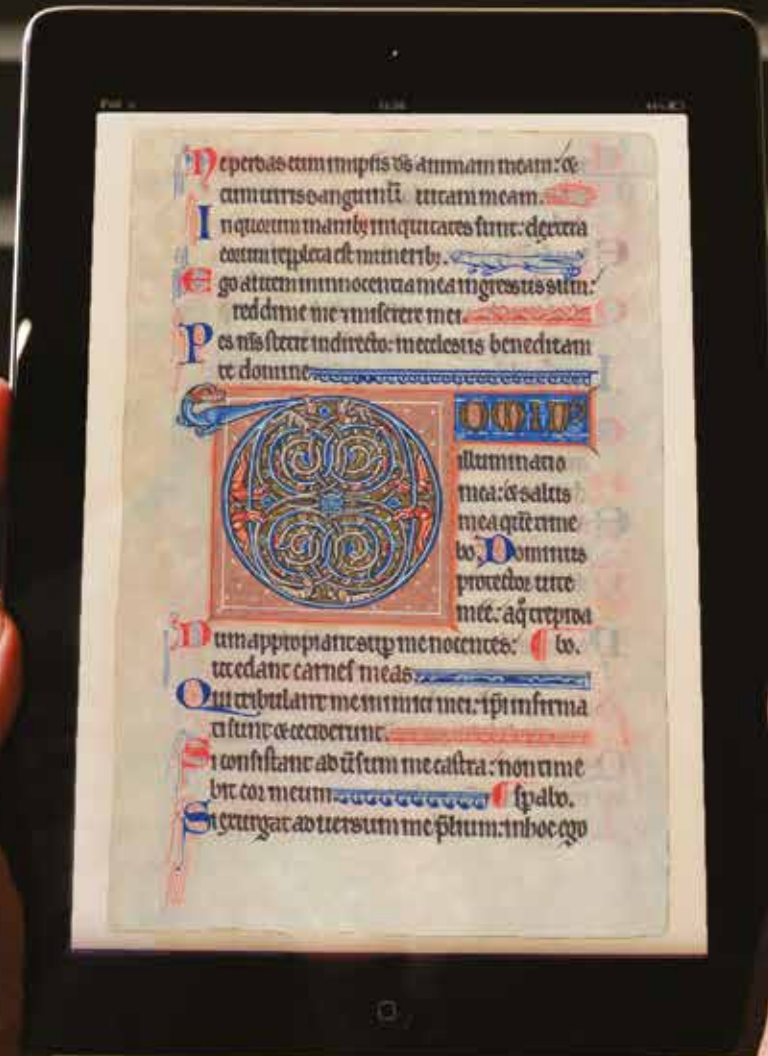 Ne perdas cum impiis ds animam meam: &
cum uiris sanguinū uitam meam.
In quorum manibꝫ iniquitates sunt: dextera
eorum repleta est muneribꝫ.
Ego autem in innocentia mea ingressus sum:
redime me & miserere mei.
Pes ms stetit in directo: in ecclesiis benedicam
te domine
DOMIN'
illuminatio
mea: & salus
mea quē time
bo. Dominus
protector uite
mee: a q̊ trepida
Dum appropiant sup me nocentes: bo.
ut edant carnes meas.
Qui tribulant me inimici mei: ipi infirma
ti sunt & ceciderunt.
Si consistant aduersum me castra: non time
bit cor meum spabo.
Si exurgat aduersum me plium: in hoc ego